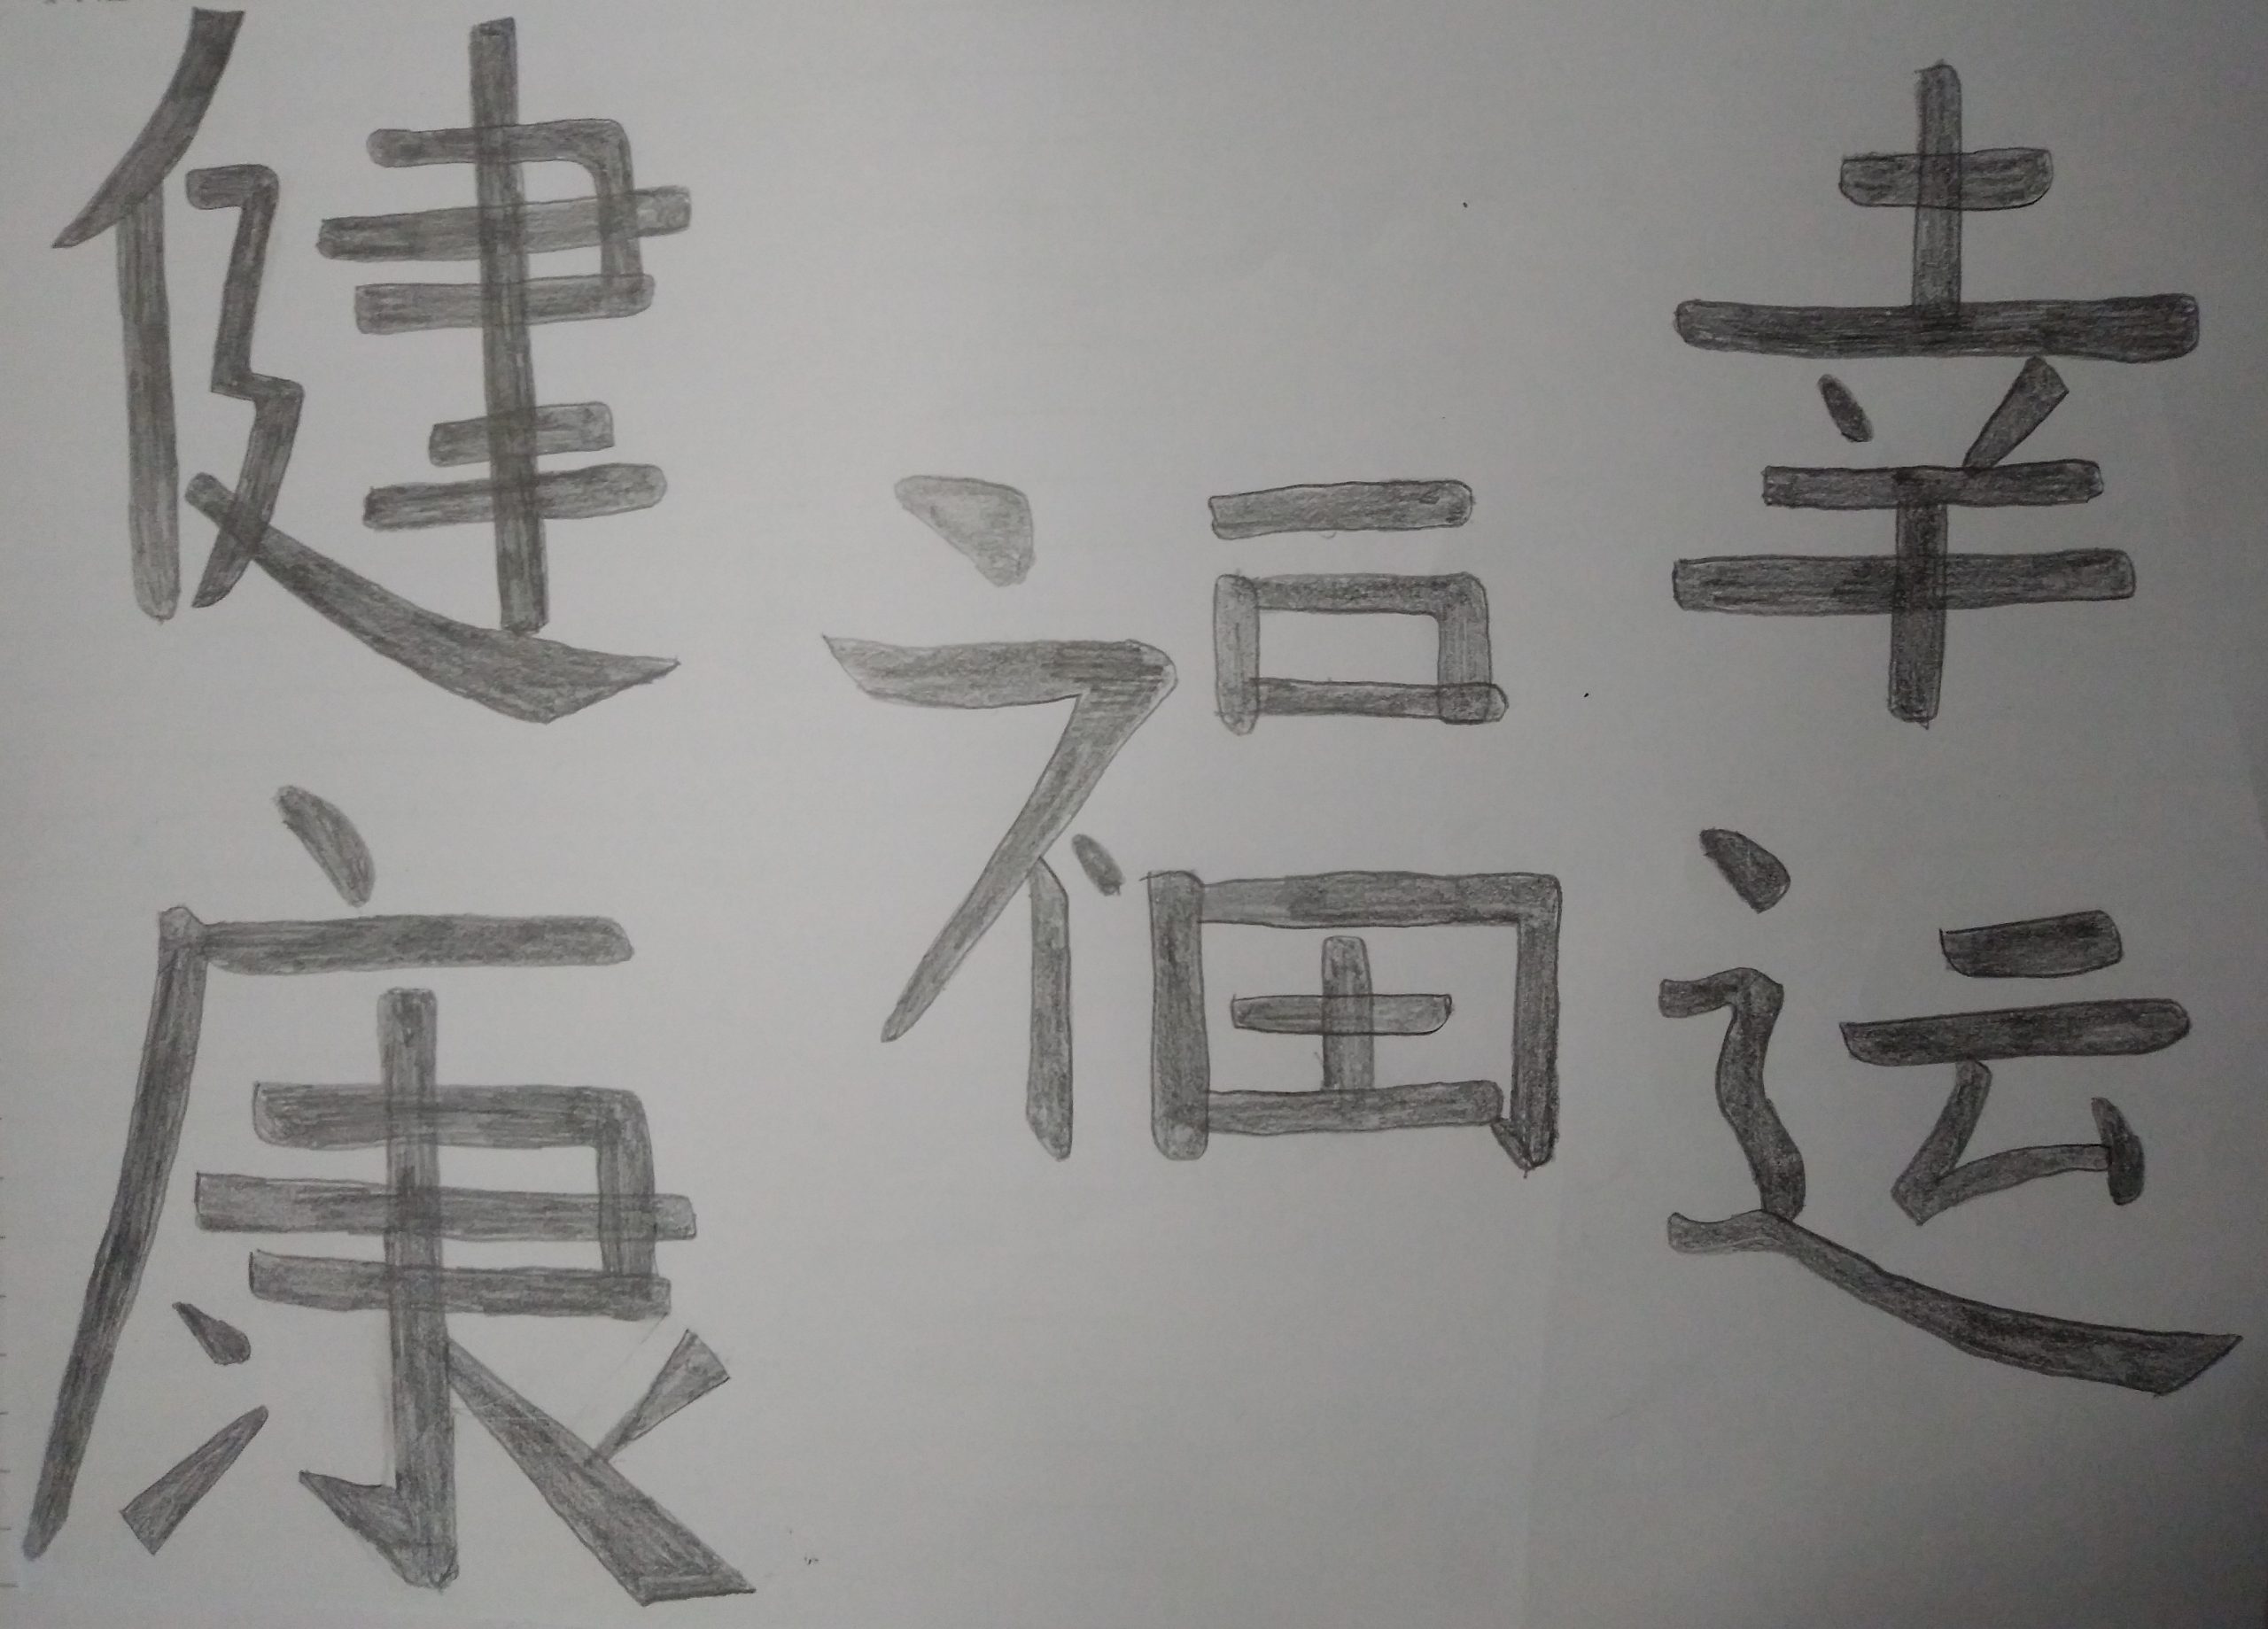 健康
福
幸运